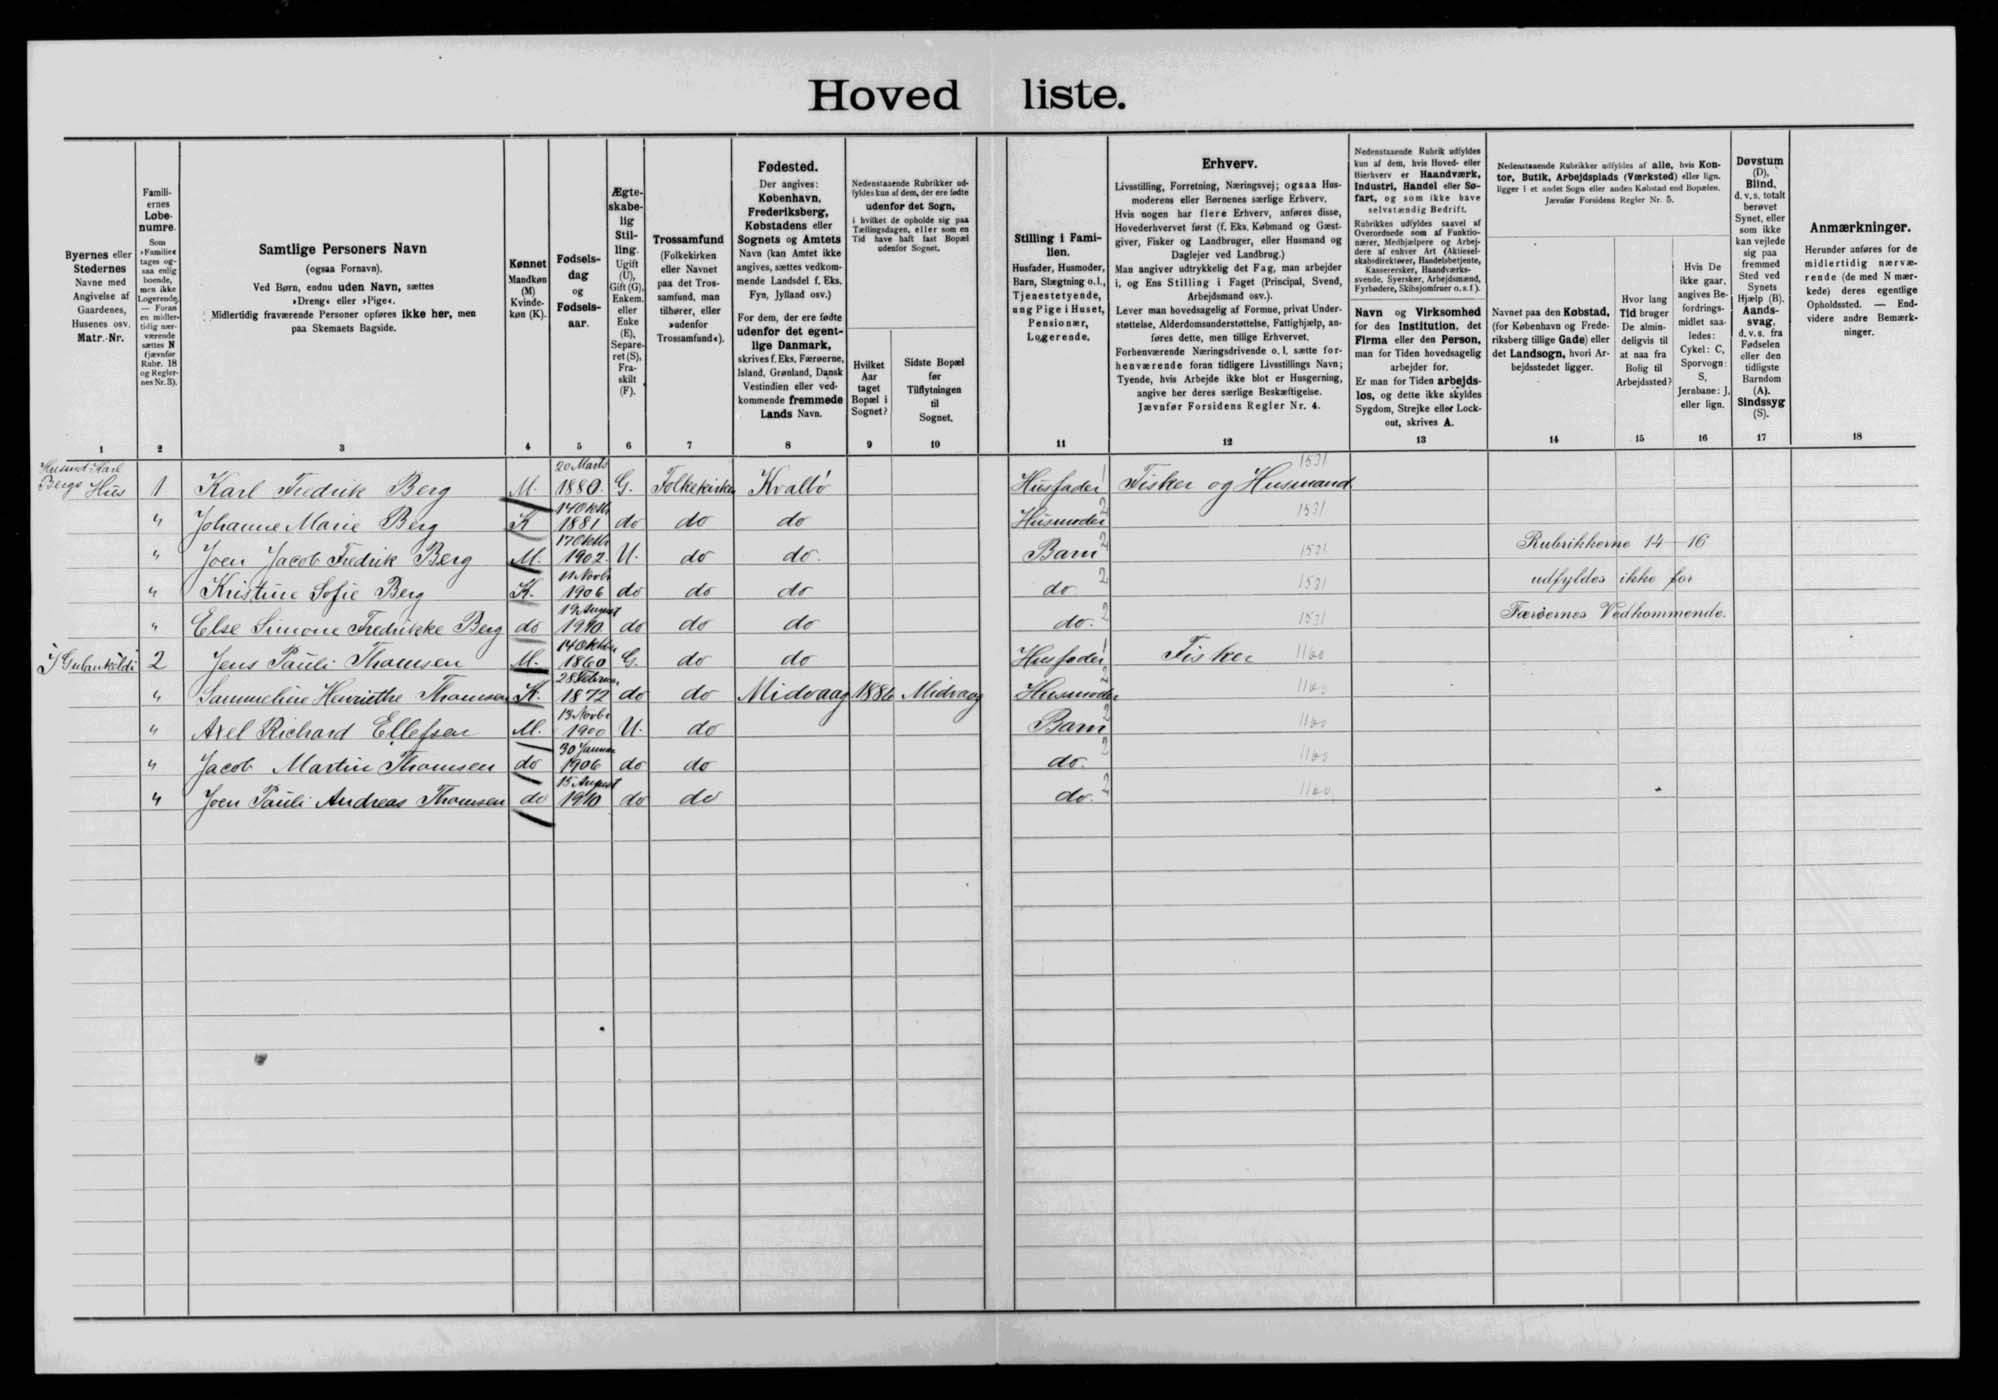 Hovedliste.
Byernes eller Stedernes Navne med Angivelse af Gaardenes, Husenes osv. Matr.-Nr.
Familiernes Løbenumre. Som »Familie« tages ogsaa enlig boende, men ikke Logerende. — Foran en midlertidig nærværende sættes N (jævnfør Rubr. 18 og Reglernes Nr. 3).
Samtlige Personers Navn (ogsaa Fornavn). Ved Børn, endnu uden Navn, sættes »Dreng« eller »Pige«. Midlertidig fraværende Personer opføres ikke her, men paa Skemaets Bagside.
Kønnet Mandkøn (M) Kvindekøn (K).
Fødselsdag og Fødselsaar.
Ægteskabelig Stilling. Ugift (U), Gift (G), Enkem. eller Enke (E), Separeret (S), Fraskilt (F).
Trossamfund (Folkekirken eller Navnet paa det Trossamfund, man tilhører, eller »udenfor Trossamfund«).
Fødested. Der angives: København, Frederiksberg, Købstadens eller Sognets og Amtets Navn (kan Amtet ikke angives, sættes vedkommende Landsdel f. Eks. Fyn, Jylland osv.) For dem, der ere fødte udenfor det egentlige Danmark, skrives f. Eks. Færøerne, Island, Grønland, Dansk Vestindien eller vedkommende fremmede Lands Navn.
Nedenstaaende Rubrikker udfyldes kun af dem, der ere fødte udenfor det Sogn, i hvilket de opholde sig paa Tællingsdagen, eller som en Tid have haft fast Bopæl udenfor Sognet.
Hvilket Aar taget Bopæl i Sognet?
Sidste Bopæl før Tilflytningen til Sognet.
Stilling i Familien. Husfader, Husmoder, Barn, Slægtning o. l., Tjenestetyende, ung Pige i Huset, Pensionær, Logerende.
Erhverv. Livsstilling, Forretning, Næringsvej; ogsaa Husmoderens eller Børnenes særlige Erhverv. Hvis nogen har flere Erhverv, anføres disse, Hovederhvervet først (f. Eks. Købmand og Gæstgiver, Fisker og Landbruger, eller Husmand og Daglejer ved Landbrug.) Man angiver udtrykkelig det Fag, man arbejder i, og Ens Stilling i Faget (Principal, Svend, Arbejdsmand osv.). Lever man hovedsagelig af Formue, privat Understøttelse, Alderdomsunderstøttelse, Fattighjælp, anføres dette, men tillige Erhvervet. Forhenværende Næringsdrivende o. l. sætte forhenværende foran tidligere Livsstillings Navn; Tyende, hvis Arbejde ikke blot er Husgerning, angive her deres særlige Beskæftigelse. Jævnfør Forsidens Regler Nr. 4.
Nedenstaaende Rubrik udfyldes kun af dem, hvis Hoved- eller Bierhverv er Haandværk, Industri, Handel eller Søfart, og som ikke have selvstændig Bedrift. Rubrikken udfyldes saavel af Overordnede som af Funktionærer, Medhjælpere og Arbejdere af enhver Art (Aktieselskabsdirektører, Handelsbetjente, Kasserersker, Haandværkssvende, Syersker, Arbejdsmænd, Fyrbødere, Skibsjomfruer o. s. f.).
Navn og Virksomhed for den Institution, det Firma eller den Person, man for Tiden hovedsagelig arbejder for. Er man for Tiden arbejdsløs, og dette ikke skyldes Sygdom, Strejke eller Lockout, skrives A.
Nedenstaaende Rubrikker udfyldes af alle, hvis Kontor, Butik, Arbejdsplads (Værksted) eller lign. ligger i et andet Sogn eller anden Købstad end Bopælen. Jævnfør Forsidens Regler Nr. 5.
Navnet paa den Købstad, (for København og Frederiksberg tillige Gade) eller det Landsogn, hvori Arbejdsstedet ligger.
Hvor lang Tid bruger De almindeligvis til at naa fra Bolig til Arbejdssted?
Hvis De ikke gaar, angives Befordringsmidlet saaledes: Cykel: C, Sporvogn: S, Jernbane: J, eller lign.
Døvstum (D), Blind, d. v. s. totalt berøvet Synet, eller som ikke kan vejlede sig paa fremmed Sted ved Synets Hjælp (B). Aandssvag, d. v. s. fra Fødselen eller den tidligste Barndom (A). Sindssyg (S).
Anmærkninger. Herunder anføres for de midlertidig nærværende (de med N mærkede) deres egentlige Opholdssted. — Endvidere andre Bemærkninger.
1 2 3 4 5 6 7 8 9 10 11 12 13 14 15 16 17 18
Husmd. Karl Bergs Hus 1 Karl Fredrik Berg M. 20 Marts 1880. G. Folkekirken Kvalbø Husfader 1 Fisker og Husmand 1531
" Johanne Marie Berg K 14 Oktbr 1881 do do do Husmoder 2 1531
" Joen Jacob Fredrik Berg M. 17 Oktbr 1902. U. do do. Barn 2 1531 Rubrikkerne 14-16
" Kristine Sofie Berg K. 11 Novbr 1906 do do do do 2 1531 udfyldes ikke for
" Else Simone Fredrikke Berg do 19 August 1910. do do do do. 2 1531 Færøernes Vedkommende.
2 Jens Pauli Thomsen M. 14 Oktbr 1860 G. do do Husfader 1 Fisker 1160
" Sammeline Henriethe Thomsen K. 28 Februar 1872 do do Midvaag 1886 Midvaag Husmoder 2 1160
" Axel Richard Ellefsen M. 13 Novbr 1900 U. do Barn 2 1160
" Jacob Martin Thomsen do 30 Januar 1906 do do do. 2 1160
" Joen Pauli Andreas Thomsen do 15 August 1910 do do do. 2 1160